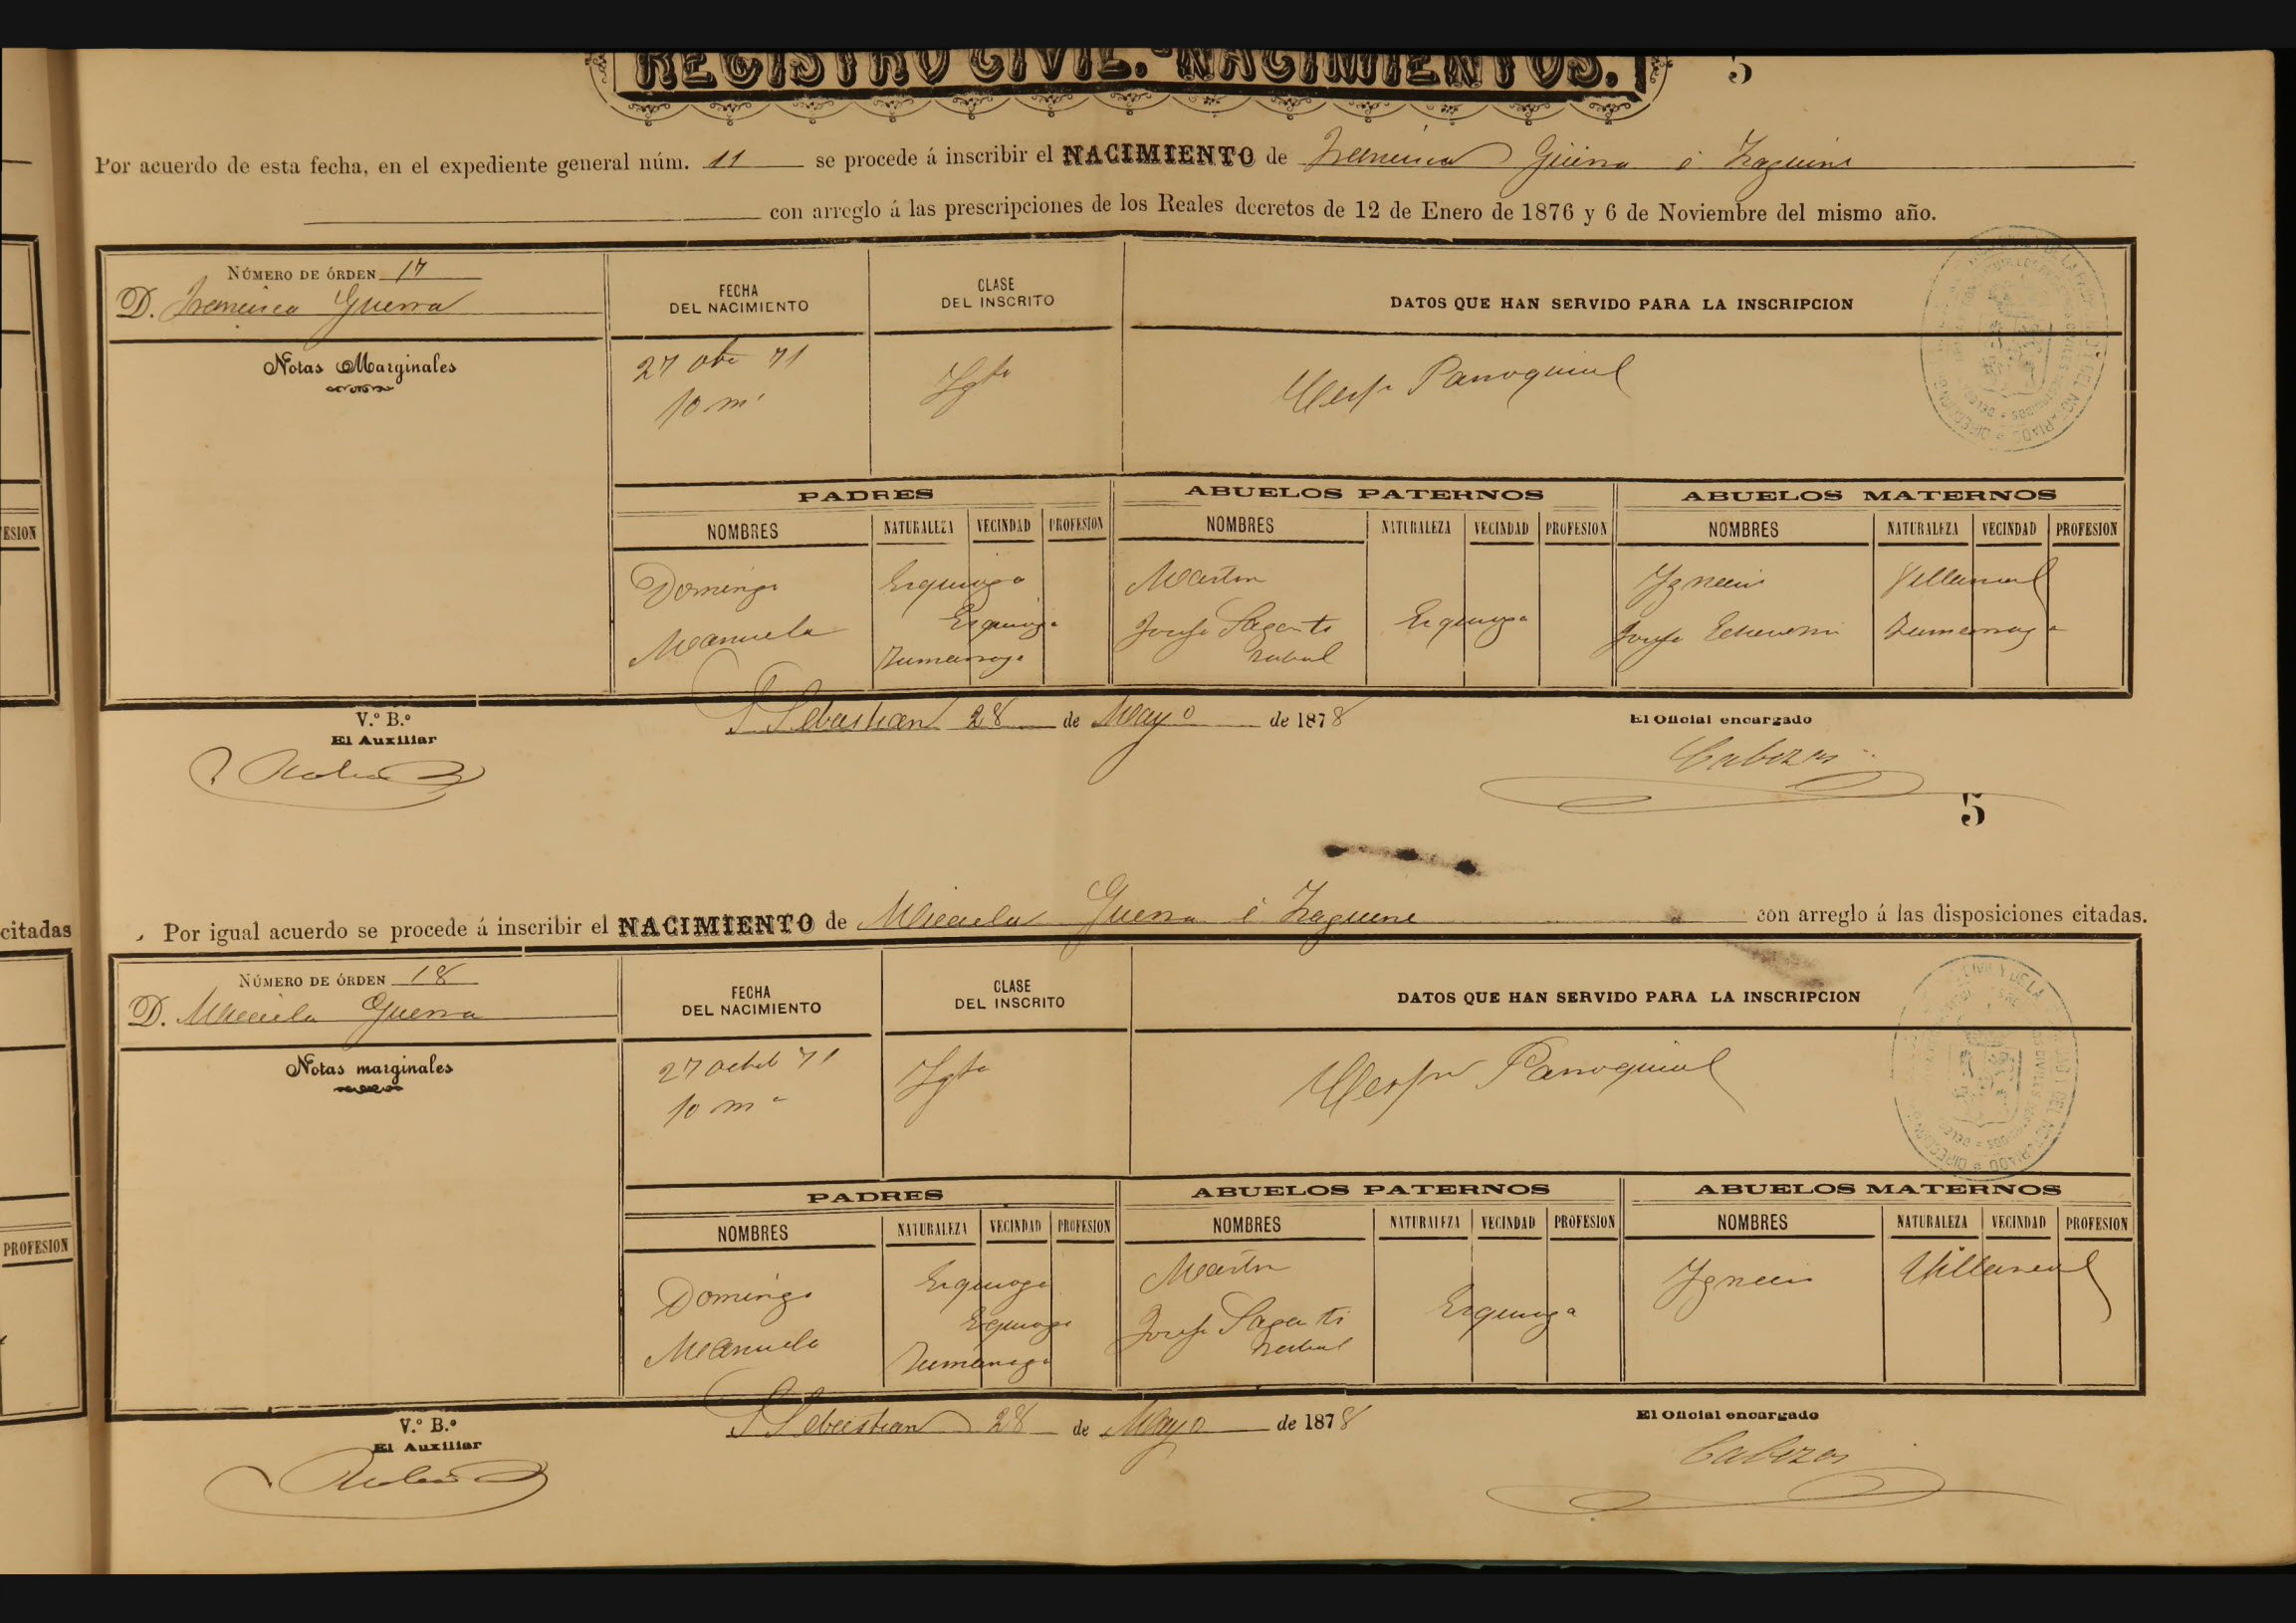 REGISTRO CIVIL.-NACIMIENTOS.
5
Por acuerdo de esta fecha, en el expediente general núm. 11 se procede á inscribir el NACIMIENTO de Francisca Guerra é
con arreglo á las prescripciones de los Reales decretos de 12 de Enero de 1876 y 6 de Noviembre del mismo año.
NÚMERO DE ÓRDEN 17
D. Francisca Guerra
Notas Marginales
FECHA
DEL NACIMIENTO
27 71
10
CLASE
DEL INSCRITO
DATOS QUE HAN SERVIDO PARA LA INSCRIPCION
Parroquial
PADRES
ABUELOS PATERNOS
ABUELOS MATERNOS
NOMBRES NATURALEZA VECINDAD PROFESION NOMBRES NATURALEZA VECINDAD PROFESION NOMBRES NATURALEZA VECINDAD PROFESION
Domingo Ezquioga Martin Ygnacio Villarreal
Manuela Ezquioga Josefa Ezquioga Josefa Echeverria Zumarraga
Zumarraga
S Sebastian 28 de Mayo de 1878
V.º B.º
El Auxiliar
El Oficial encargado
Cabezas
5
Por igual acuerdo se procede á inscribir el NACIMIENTO de Micaela Guerra é con arreglo á las disposiciones citadas.
NÚMERO DE ÓRDEN 18
D. Micaela Guerra
Notas marginales
FECHA
DEL NACIMIENTO
27 71
10
CLASE
DEL INSCRITO
DATOS QUE HAN SERVIDO PARA LA INSCRIPCION
Parroquial
PADRES
ABUELOS PATERNOS
ABUELOS MATERNOS
NOMBRES NATURALEZA VECINDAD PROFESION NOMBRES NATURALEZA VECINDAD PROFESION NOMBRES NATURALEZA VECINDAD PROFESION
Domingo Ezquioga Martin Ygnacio Villarreal
Manuela Ezquioga Josefa Ezquioga
Zumarraga
S Sebastian 28 de Mayo de 1878
V.º B.º
El Auxiliar
El Oficial encargado
Cabezas
ESION
citadas
PROFESION